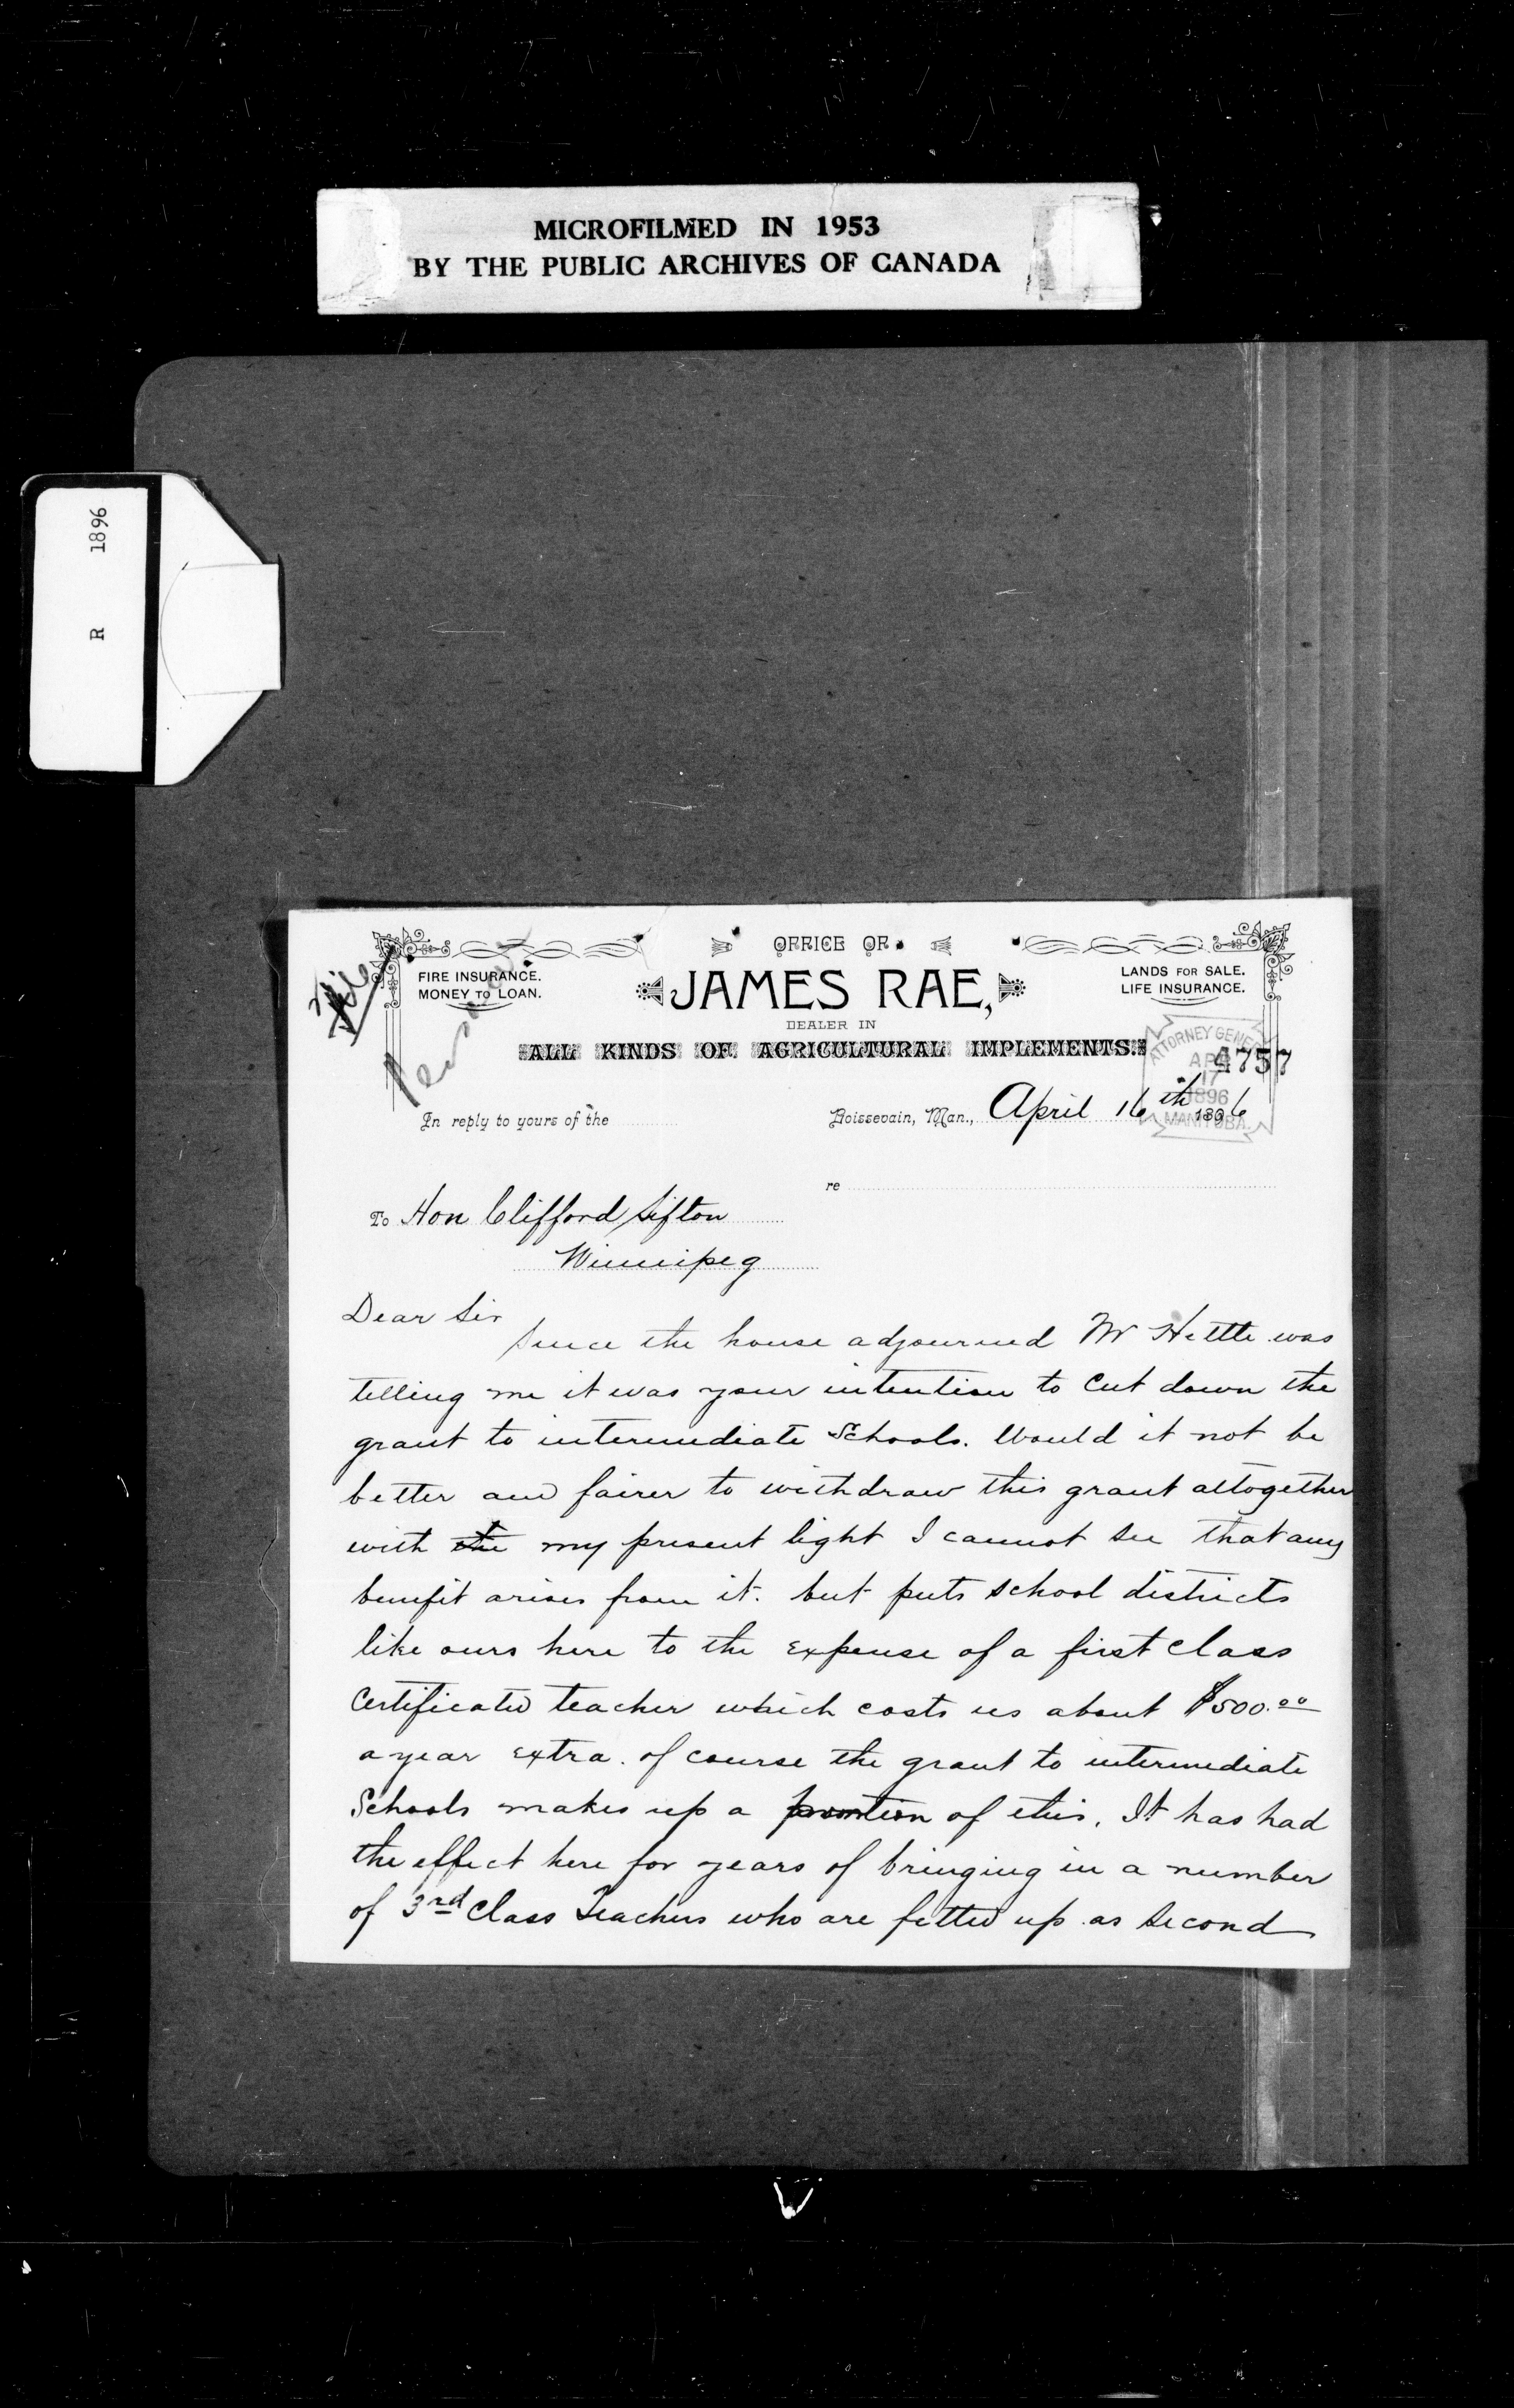 MICROFILMED IN 1953
BY THE PUBLIC ARCHIVES OF CANADA
R 1896
File
OFFICE OF
FIRE INSURANCE.
MONEY TO LOAN.
JAMES RAE,
LANDS FOR SALE.
LIFE INSURANCE.
DEALER IN
ALL KINDS OF AGRICULTURAL IMPLEMENTS.
ATTORNEY GENE
APR
17
1896
MANITOBA.
4757
In reply to yours of the
Boissevain, Man., April 16th 1896
re
To Hon Clifford Sifton
Winnipeg
Dear Sir
Since the house adjourned Mr Hettle was
telling me it was your intention to cut down the
grant to intermediate Schools. Would it not be
better and fairer to withdraw this grant altogether
with the my present light I cannot see that any
benefit arises from it. but puts school districts
like ours here to the expense of a first class
Certificated teacher which costs us about $500.00
a year extra. of course the grant to intermediate
Schools makes up a portion of this. It has had
the effect here for years of bringing in a number
of 3rd Class Teachers who are fitted up as second